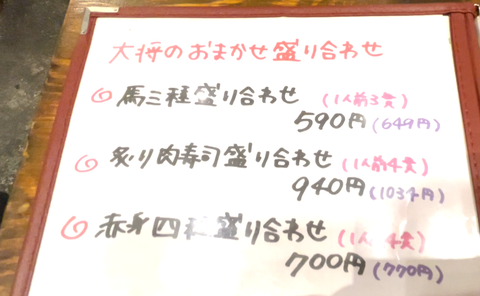 大将のおまかせ盛り合わせ
馬三種盛り合わせ (1人前3貫)
590円(649円)
炙り肉寿司盛り合わせ (1人前4貫)
940円(1034円)
赤身四種盛り合わせ (1人 4貫)
700円(770円)